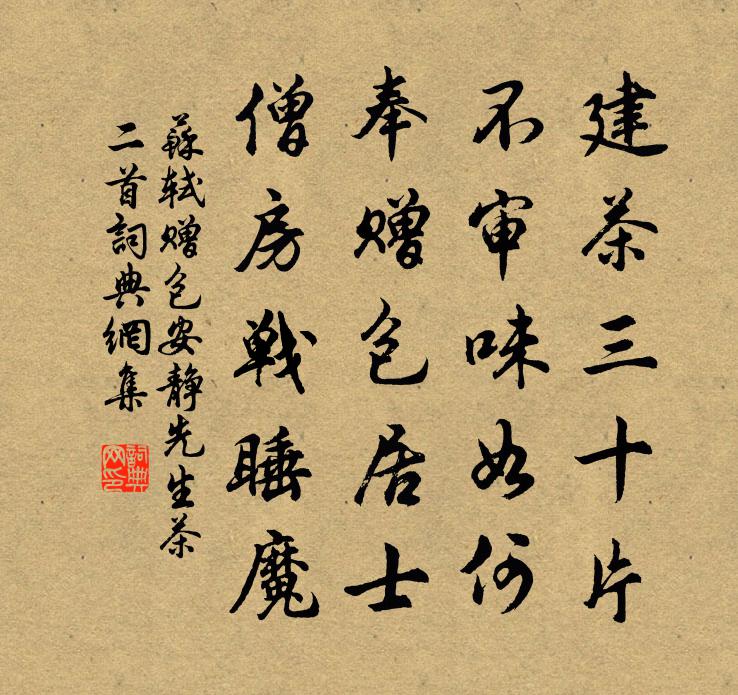 建茶三十片
不审味如何
奉赠包居士
僧房战睡魔
蘇軾赠包安静先生茶
二首詞典網集
詞典
网印